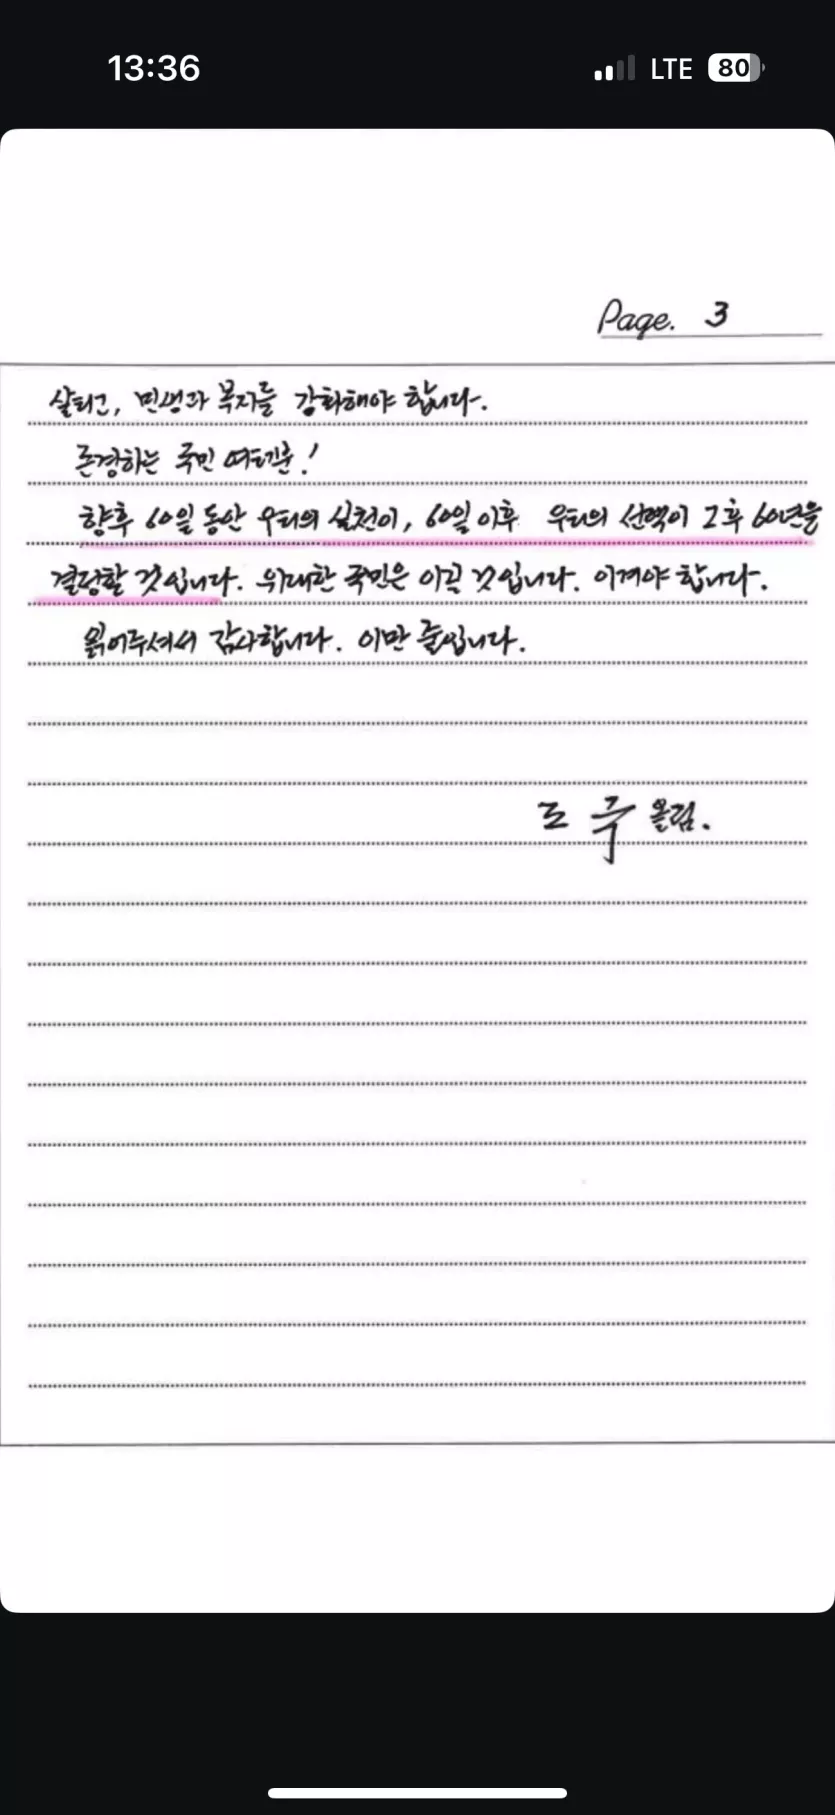 13:36
LTE 80
Page. 3
살리고, 민생과 복지를 강화해야 합니다.
존경하는 국민 여러분!
향후 60일 동안 우리의 실천이, 60일 이후 우리의 선택이 그 후 60년을
결정할 것입니다. 위대한 국민은 이길 것입니다. 이겨야 합니다.
읽어주셔서 감사합니다. 이만 줄입니다.
조 국 올림.